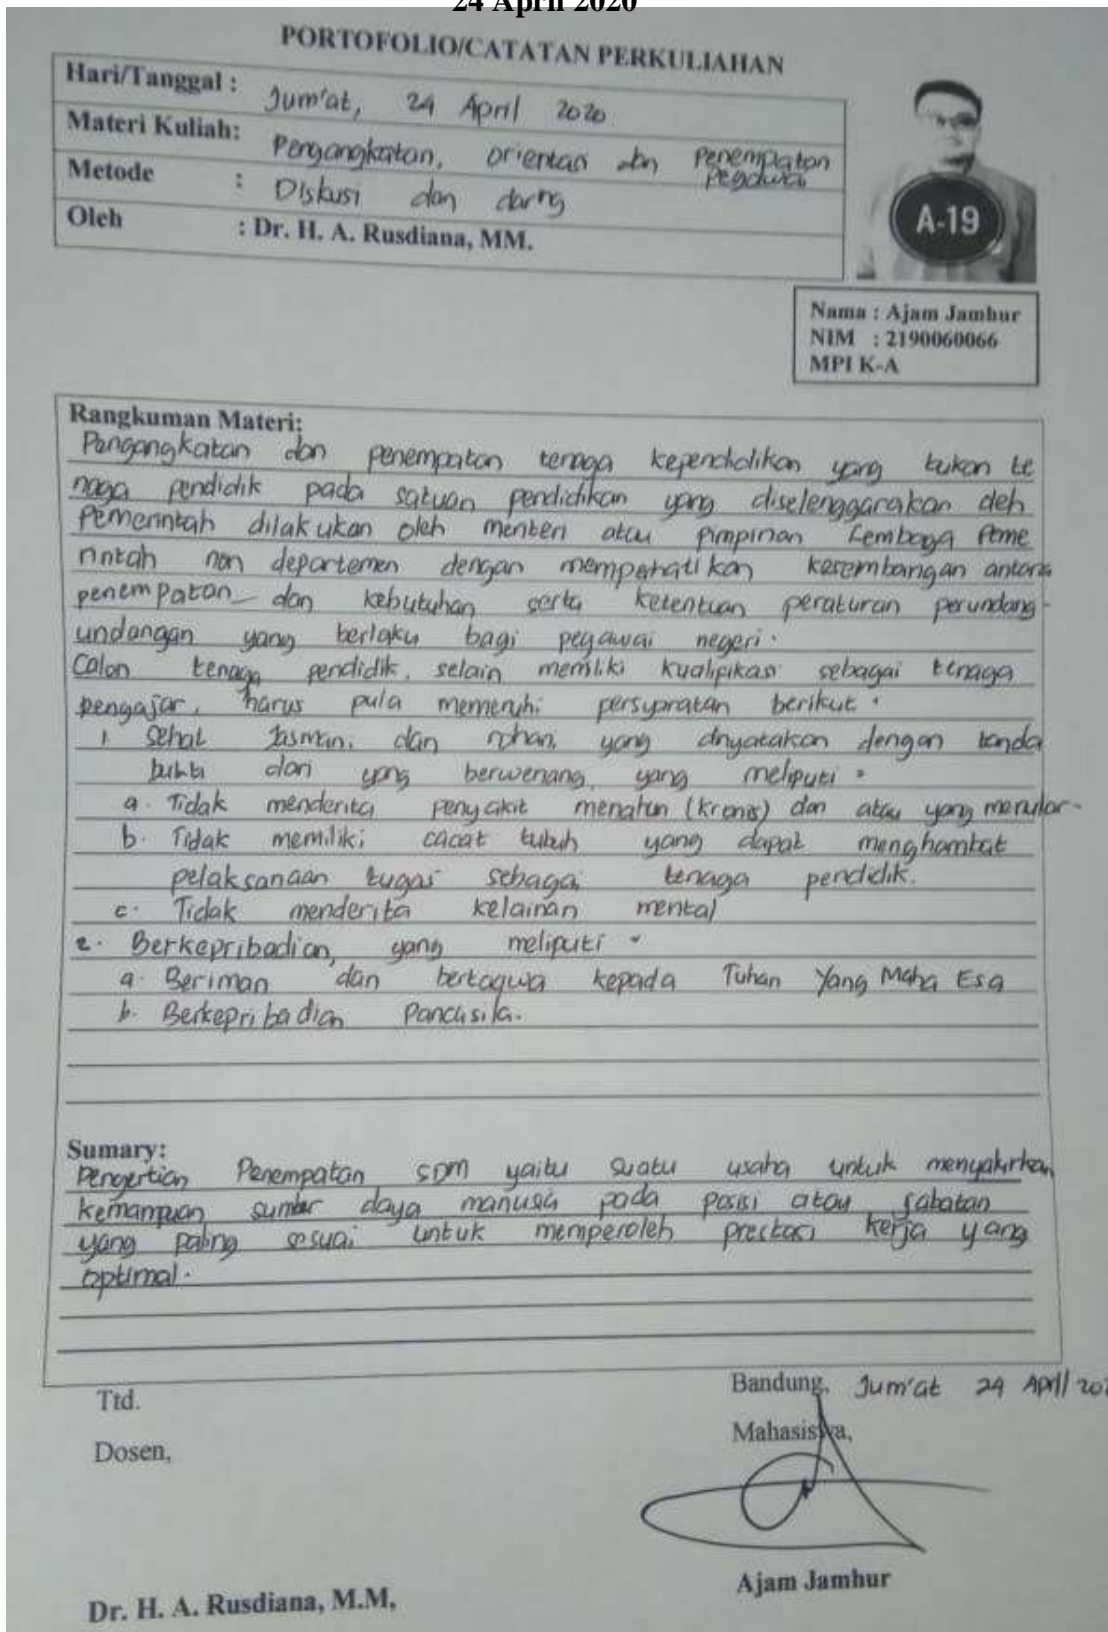 24 April 2020
PORTOFOLIO/CATATAN PERKULIAHAN
Hari/Tanggal : Jum'at, 24 April 2020
Materi Kuliah: Pengangkatan, orientasi dan Penempatan
Pegawai
Metode : Diskusi dan daring
Oleh : Dr. H. A. Rusdiana, MM.
A-19
Nama : Ajam Jamhur
NIM : 2190060066
MPI K-A
Rangkuman Materi:
Pengangkatan dan penempatan tenaga kependidikan yang bukan te
naga pendidik pada satuan pendidikan yang diselenggarakan oleh
Pemerintah dilakukan oleh menteri atau pimpinan Lembaga Peme
rintah non departemen dengan memperhatikan keseimbangan antara
penempatan dan kebutuhan serta ketentuan peraturan perundang-
undangan yang berlaku bagi pegawai negeri.
Calon tenaga pendidik, selain memiliki kualipikasi sebagai tenaga
pengajar, harus pula memenuhi persyaratan berikut :
1 Sehat Jasmani dan rohani, yang dinyatakan dengan tanda
bukti dari yang berwenang, yang meliputi :
a. Tidak menderita penyakit menahun (kronis) dan atau yang menular-
b. Tidak memiliki cacat tubuh yang dapat menghambat
pelaksanaan tugas sebagai tenaga pendidik.
c. Tidak menderita kelainan mental
2. Berkepribadian, yang meliputi :
a. Beriman dan bertaqwa kepada Tuhan Yang Maha Esa
b. Berkepribadian Pancasila.
Sumary:
Pengertian Penempatan SDM yaitu suatu usaha untuk
kemampuan sumber daya manusia pada posisi atau jabatan
yang paling sesuai untuk memperoleh prestasi kerja yang
optimal.
Ttd. Bandung, Jum'at 24 April 202
Dosen, Mahasiswa,
Dr. H. A. Rusdiana, M.M, Ajam Jamhur